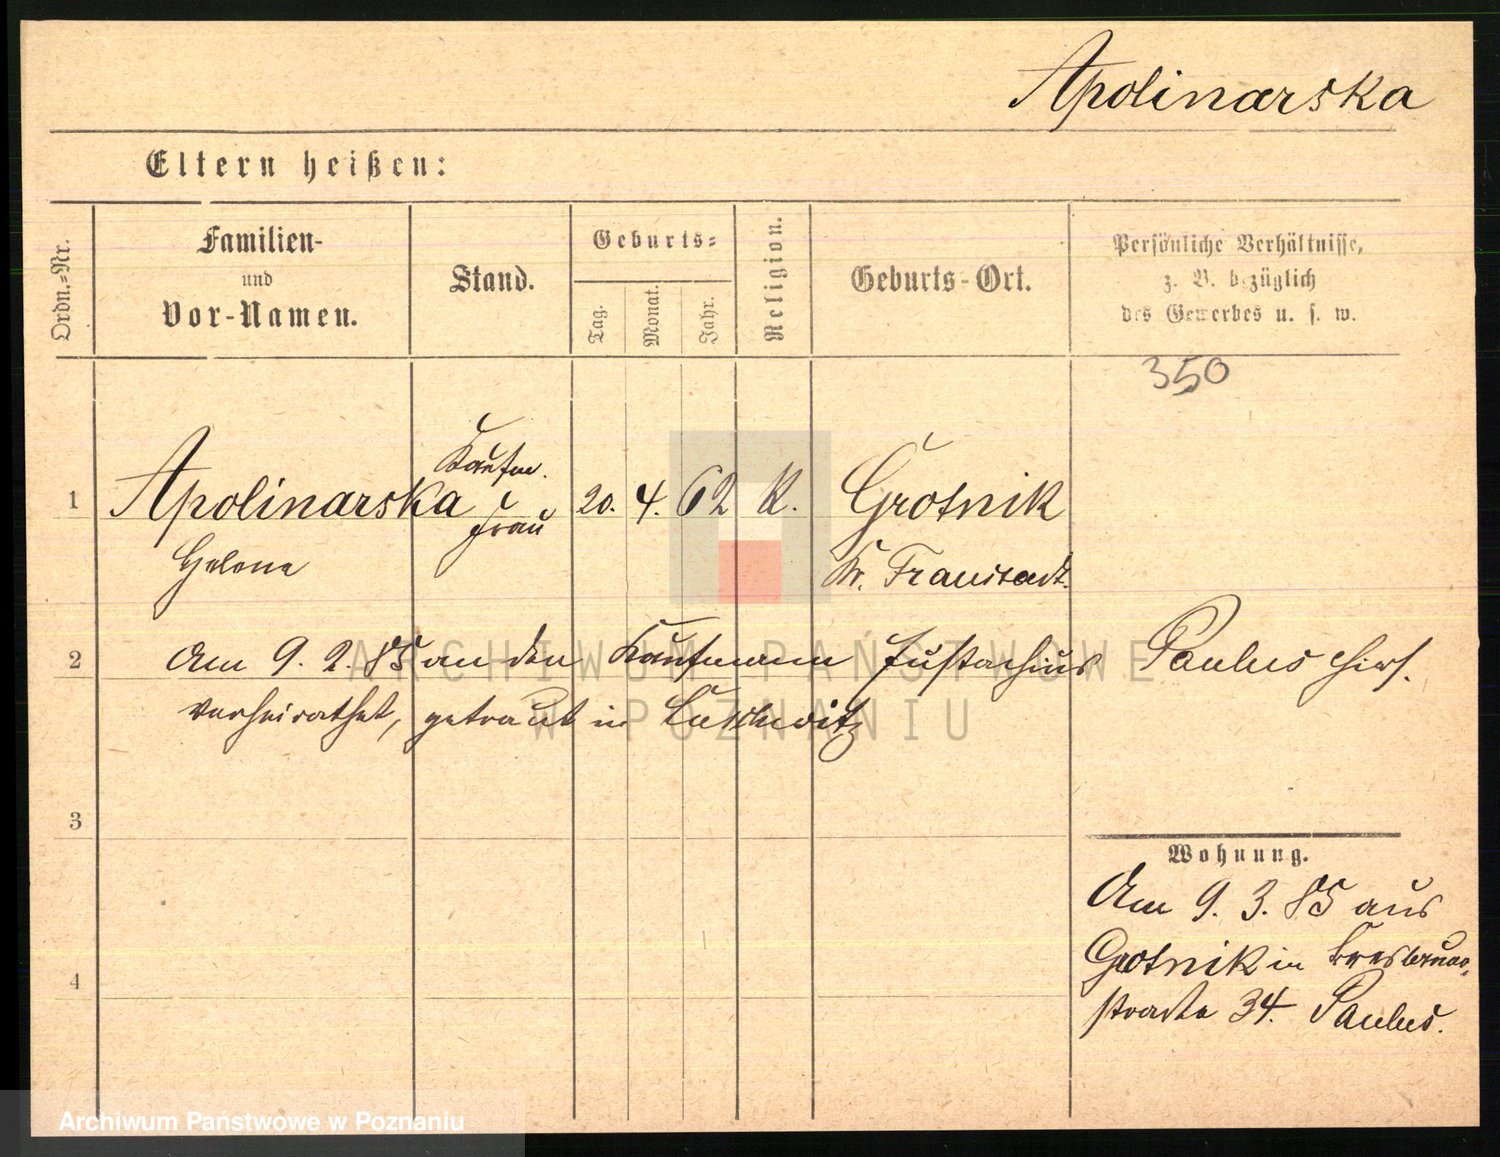 Apolinarska
Eltern heißen:
Ordn.=Nr.
Familien-
und
Vor-Namen.
Stand.
Geburts=
Tag.
Monat.
Jahr.
Religion.
Geburts-Ort.
Persönliche Verhältnisse,
z. B. bezüglich
des Gewerbes u. s. w.
350
Kaufm.
1 Apolinarska Frau 20. 4. 62 K. Grotnik
Helena Kr. Fraustadt.
2 Am 9. 2. 85 an den Kaufmann Eustachius Paulus hies.
verheirathet, getraut in
3
Wohnung.
Am 9. 3. 85 aus
Grotnik in
4
straße 34. Paulus.
ARCHIWUM PAŃSTWOWE
W POZNANIU
Archiwum Panstwowe w Poznaniu